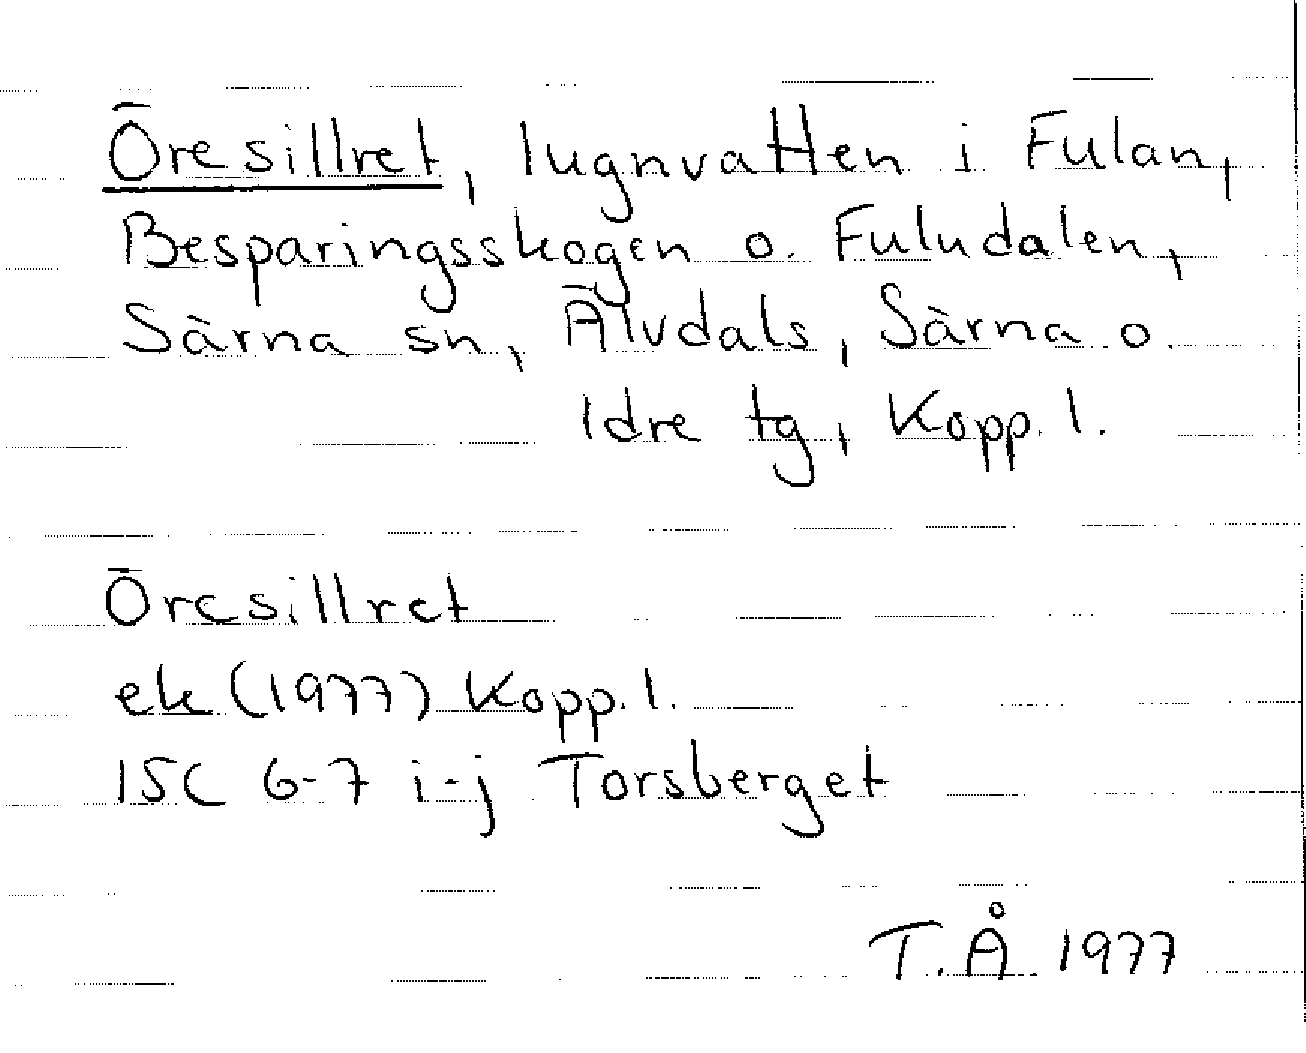 Öresillret, lugnvatten i Fulan,
Besparingsskogen o. Fuludalen,
Särna sn, Älvdals, Särna o.
Idre tg, Kopp. l.
Öresillret
ek (1977) Kopp. l.
15C 6-7 i-j Torsberget
T.Å 1977